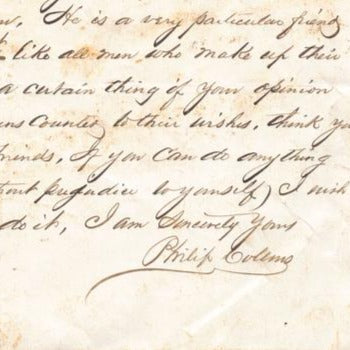 He is a very particular friend
like all men who make up their
a certain thing if your opinion
uns counter to their wishes, think yo
riends, If you can do anything
hout prejudice to yourself) I wish
do it, I am Sincerely Yours
Philip Collins